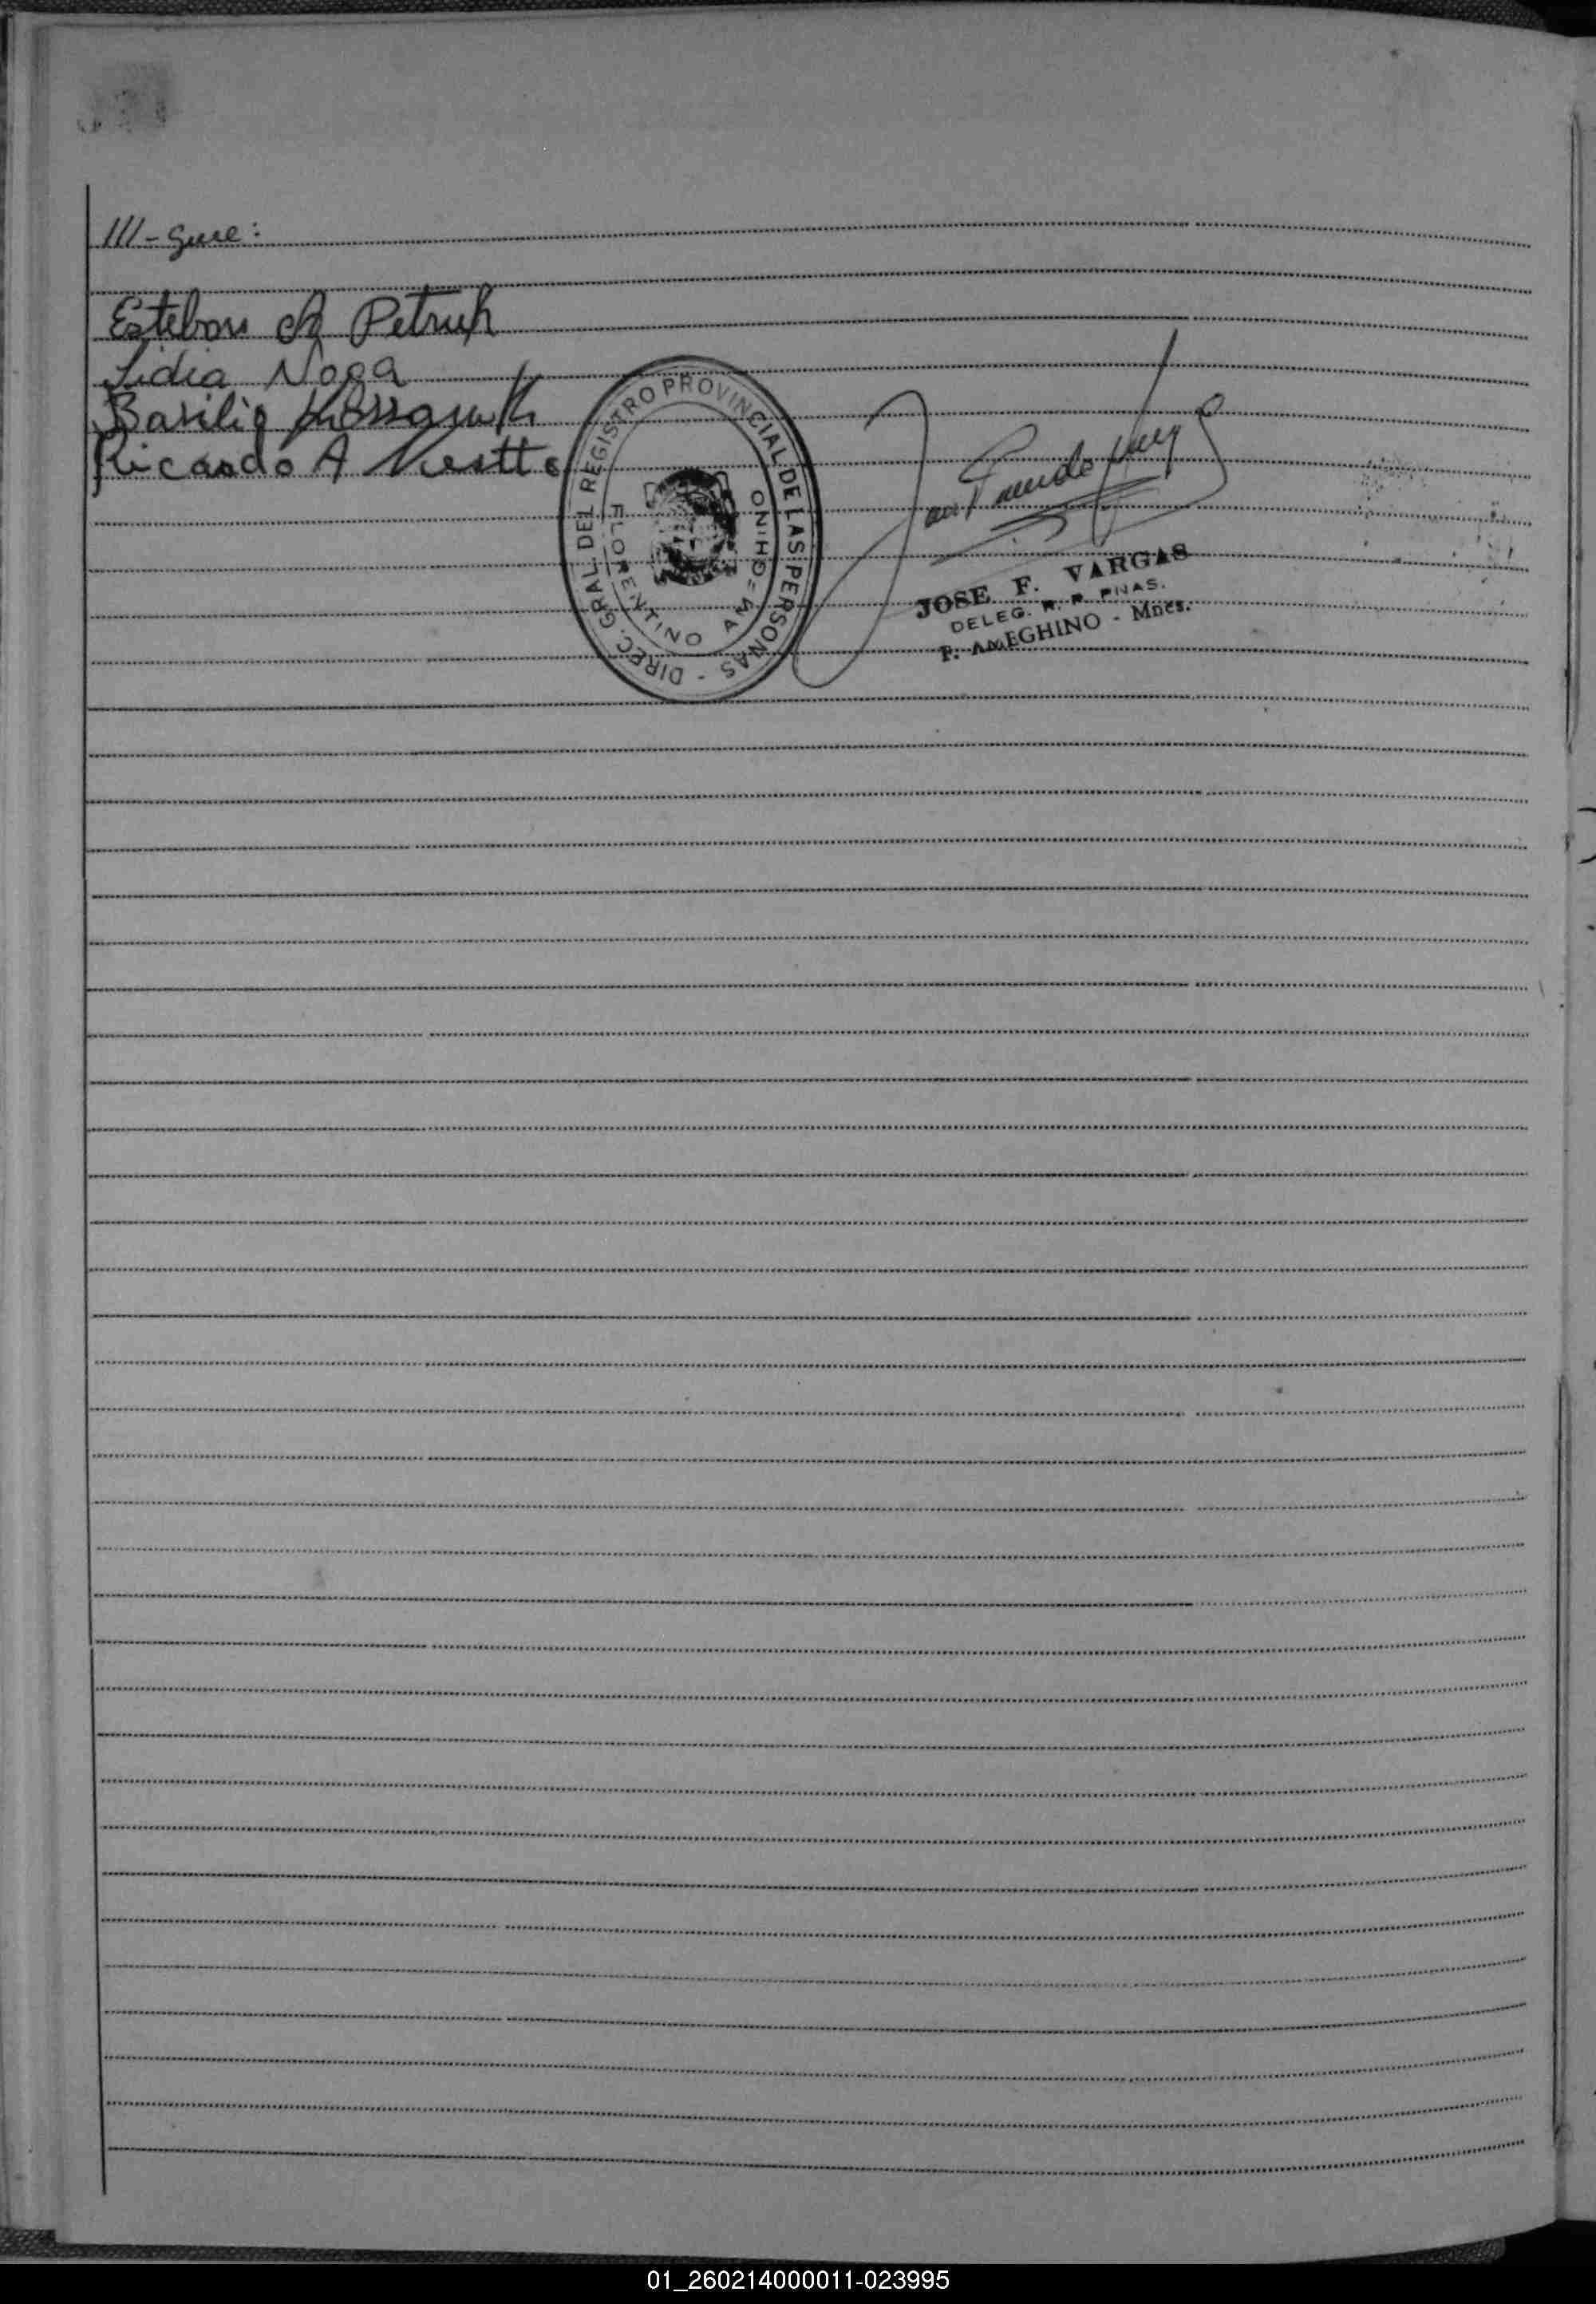 III-gue:
Esteban A Petruk
Lidia Noga
Basilio
Ricardo A
DIREC. GRAL. DEL REGISTRO PROVINCIAL DE LAS PERSONAS -
FLORENTINO AMEGHINO
JOSE F. VARGAS
DELEG. R. P. PNAS.
F. AMEGHINO - Mnes.
01_260214000011-023995